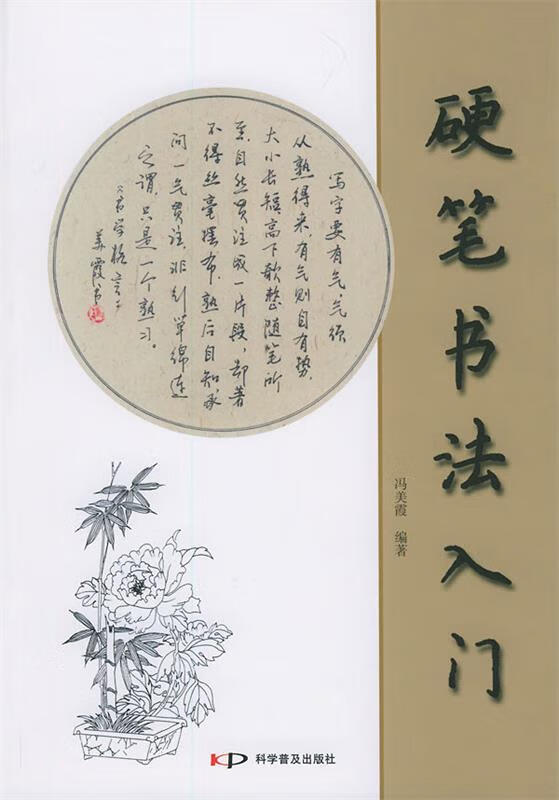 硬笔书法入门
冯美霞 编著
写字要有气，气须
从熟得来，有气则自有势，
大小长短高下欹整随笔所
至，自然贯注成一片段，却著
不得丝毫摆布，熟后自知承
问一气贯注，非引单绵连
之谓，只是一个熟习。
美霞书
KP 科学普及出版社